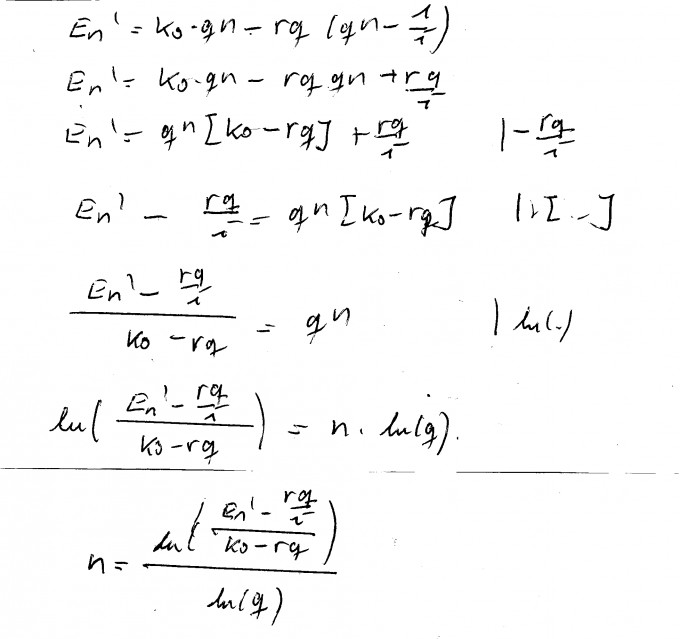 En' = K₀·qn − rq (qn − 1/i)
En' = K₀·qn − rq qn + rq/i
En' = qn [K₀ − rq] + rq/i | − rq/i
En' − rq/i = qn [K₀ − rq] | : [...]
(En' − rq/i)/(K₀ − rq) = qn | ln(.)
ln((En' − rq/i)/(K₀ − rq)) = n · ln(q).
n = ln((En' − rq/i)/(K₀ − rq))/ln(q)